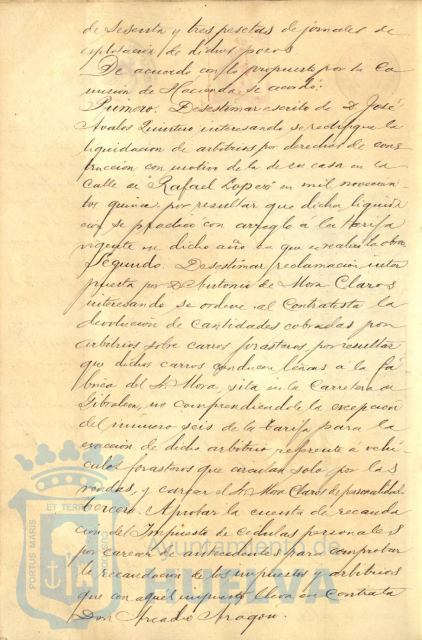 de sesenta y tres pesetas de jornales de
explotación de dichos pozos
De acuerdo con lo propuesto por la Co
misión de Hacienda se acordó:
Primero. Desestimar escrito de D. José
Avalos Quintero interesando se rectifique la
liquidación de arbitrios por derechos de cons
trucción con motivo de la de su casa en la
calle de Rafael López en mil novecien
tos quince, por resultar que dicha liquida
ción se practicó con arreglo á la tarifa
vigente en dicho año en que se realizó la obra
Segundo. Desestimar reclamación inter
puesta por D. Antonio de Mora Claros
interesando se ordene al Contratista la
devolución de cantidades cobradas por
arbitrios sobre carros forasteros por resultar
que dichos carros conducen leñas a la fá
brica del Sr. Mora, sita en la Carretera de
Gibraleon, no comprendiendole la excepción
del número seis de la tarifa para la
exacción de dicho arbitrio referente á vehi
culos forasteros que circulan solo por las
rondas, y carecer el Sr. Mora Claros de personalidad
Tercero. Aprobar la cuenta de recauda
ción del Impuesto de cédulas personales
por carecer de antecedentes para comprobar
la recaudación de los impuestos y arbitrios
que con aquel impuesto lleva en contrata
Don Arcadio Aragon.
PORTUS MARIS
ET TERRAE
CUSTODIA
Ayuntamiento de
HUELVA